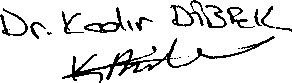 Dr. Kadir DİBEK